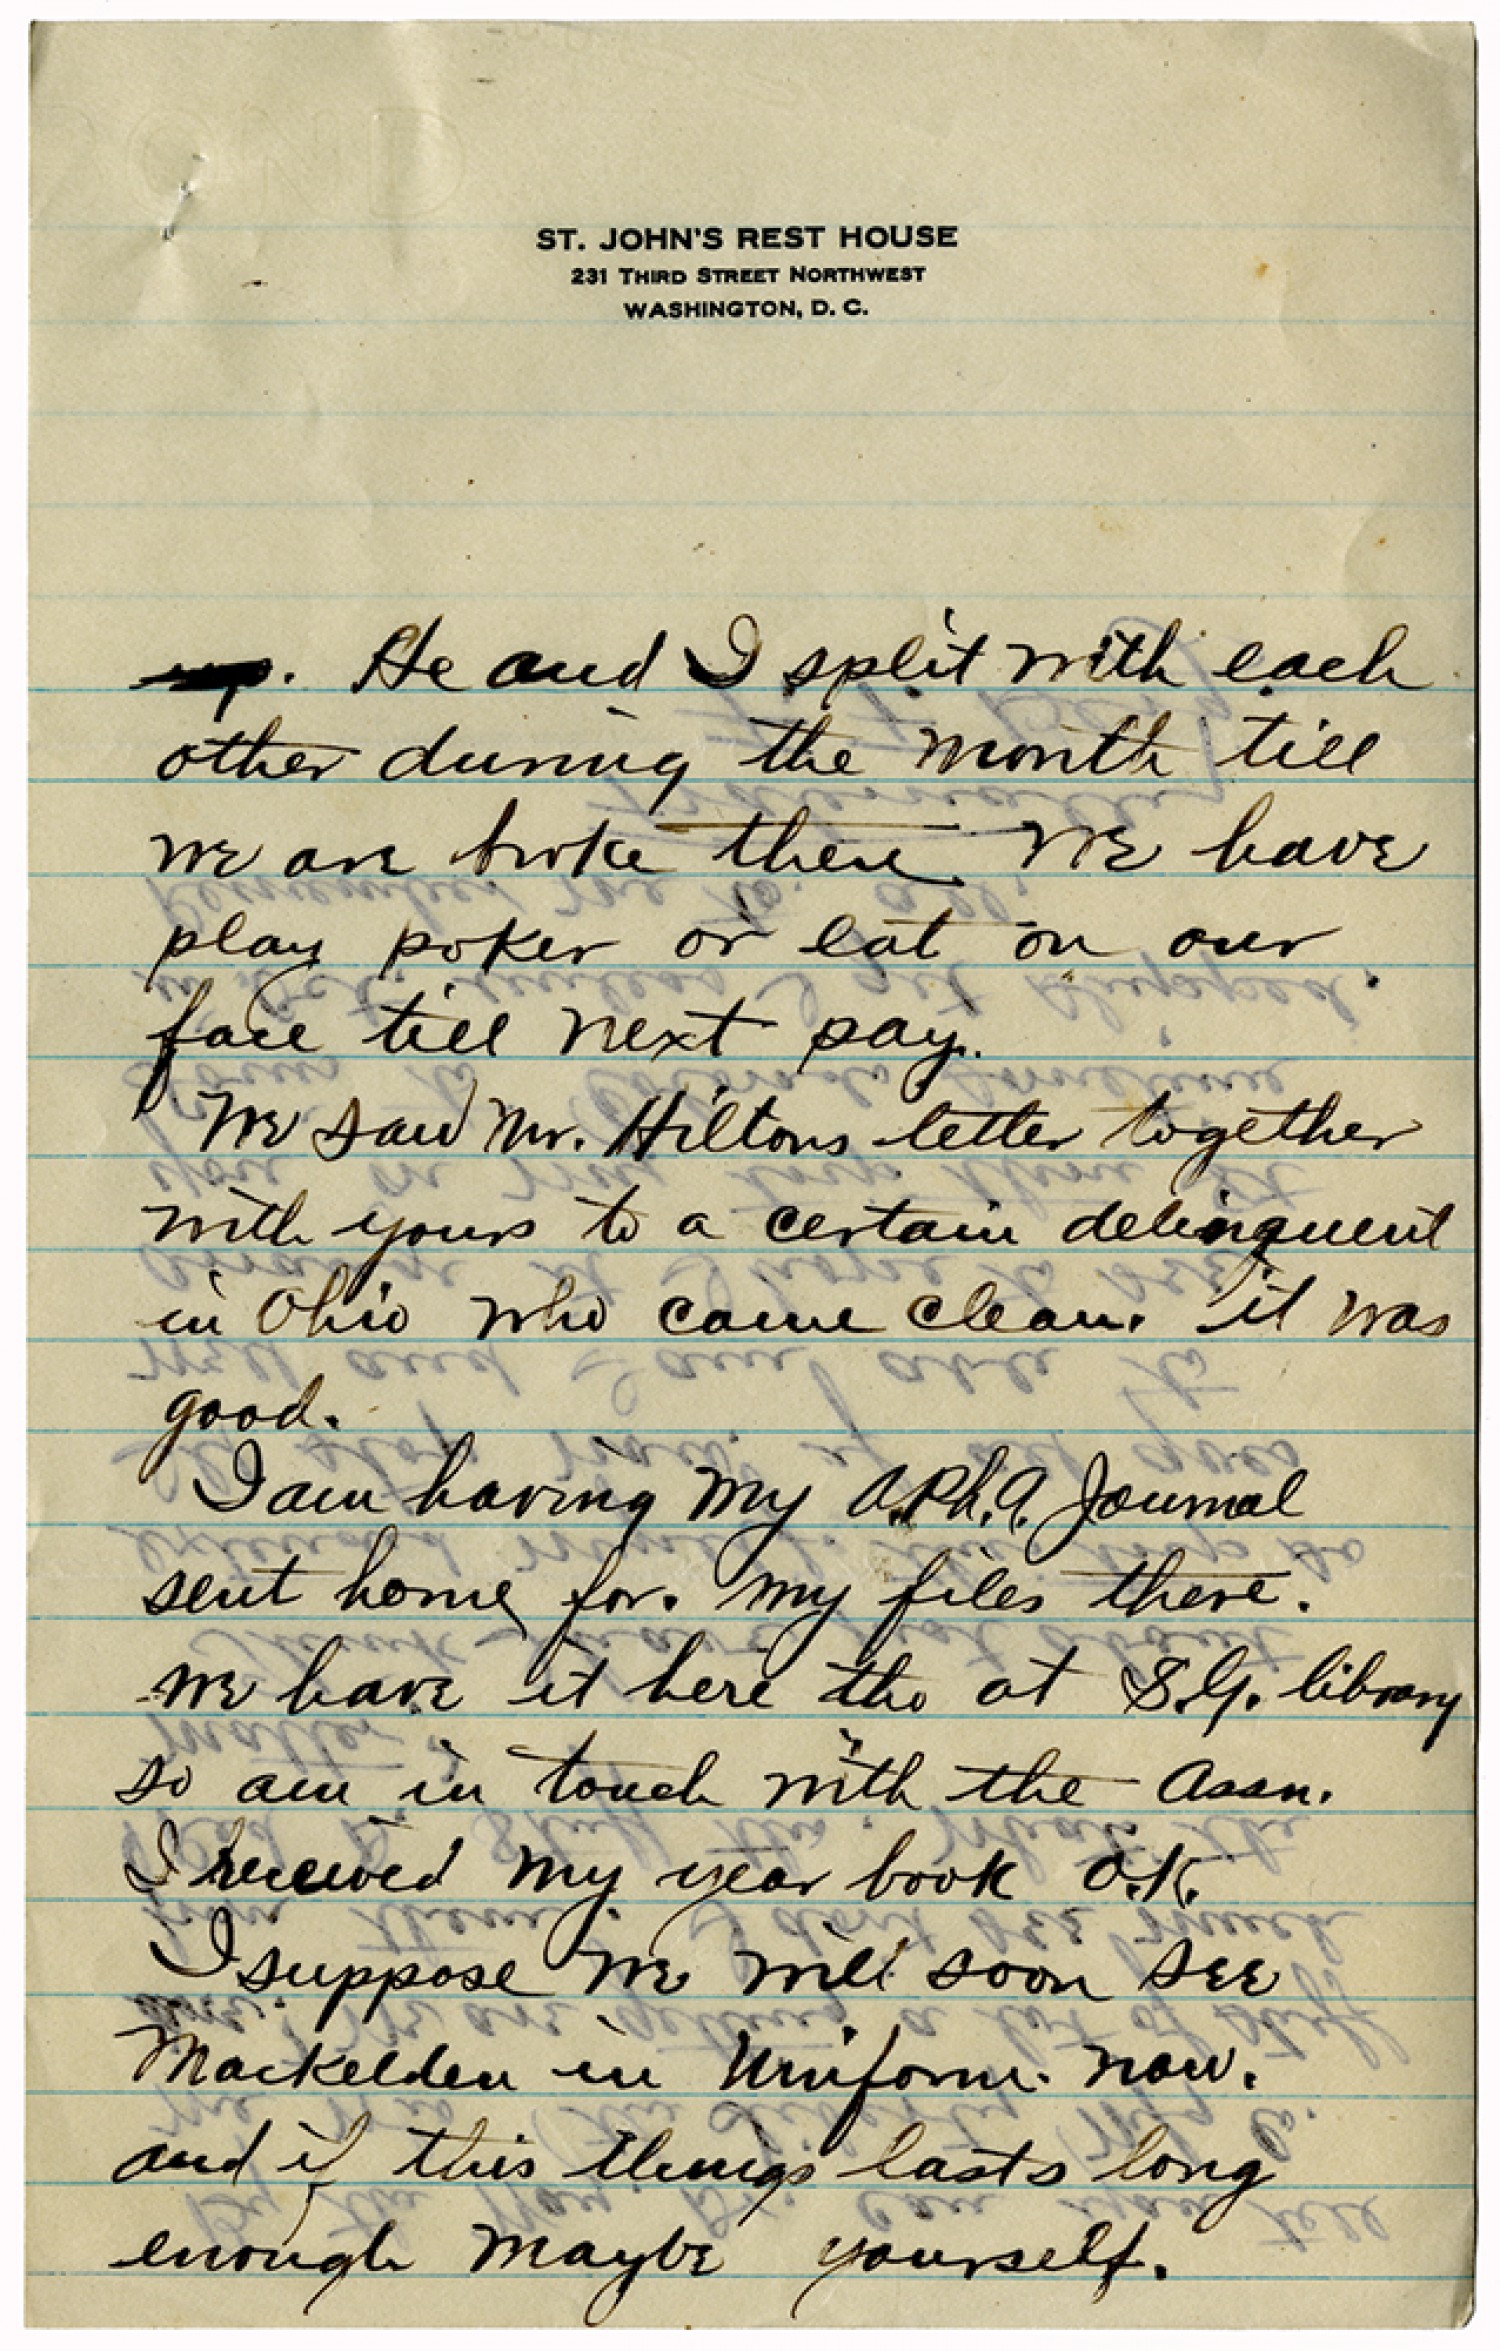 ST. JOHN'S REST HOUSE
231 THIRD STREET NORTHWEST
WASHINGTON, D. C.
. He and I split with each
other during the month till
we are broke then we have
play poker or eat on our
face till next pay.
We saw Mr. Hiltons letter together
with yours to a certain delinquent
in Ohio who came clean. it was
good.
I am having my A.Ph.A. Journal
sent home for my files there.
We have it here tho at S.G. library
so am in touch with the Assn.
I received my year book O.K.
I suppose we will soon see
Mackelden in Uniform now.
and if this things lasts long
enough maybe yourself.